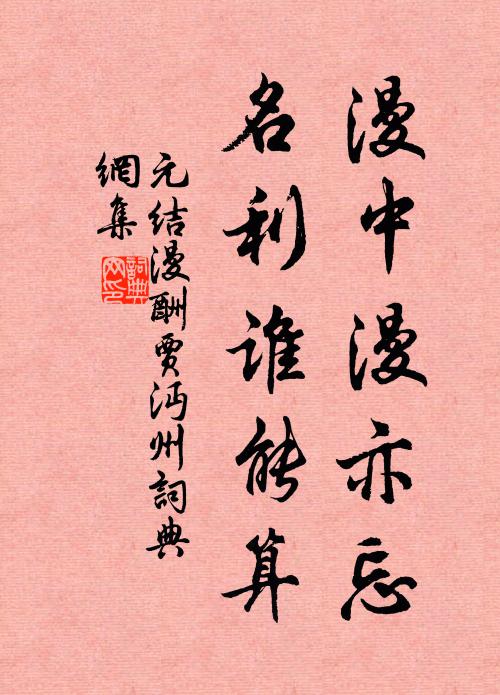 漫中漫亦忘
名利谁能算
元结漫酬贾沔州詞典
網集
詞典
网印